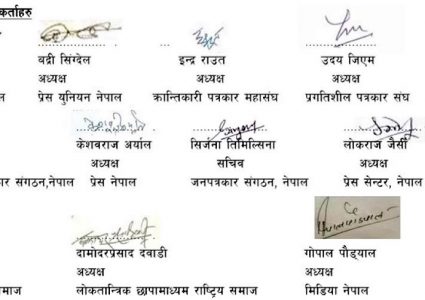 कर्ताहरु
बद्री सिग्देल इन्द्र राउत उदय जिएम
अध्यक्ष अध्यक्ष अध्यक्ष
प्रेस युनियन नेपाल क्रान्तिकारी पत्रकार महासंघ प्रगतिशील पत्रकार संघ
केशवराज अर्याल सिर्जना तिमिल्सिना लोकराज जैसी
अध्यक्ष सचिव अध्यक्ष
कार संगठन,नेपाल प्रेस नेपाल जनपत्रकार संगठन, नेपाल प्रेस सेन्टर, नेपाल
दामोदरप्रसाद दवाडी गोपाल पौड्याल
अध्यक्ष अध्यक्ष
माज लोकतान्त्रिक छापामाध्यम राष्ट्रिय समाज मिडिया नेपाल